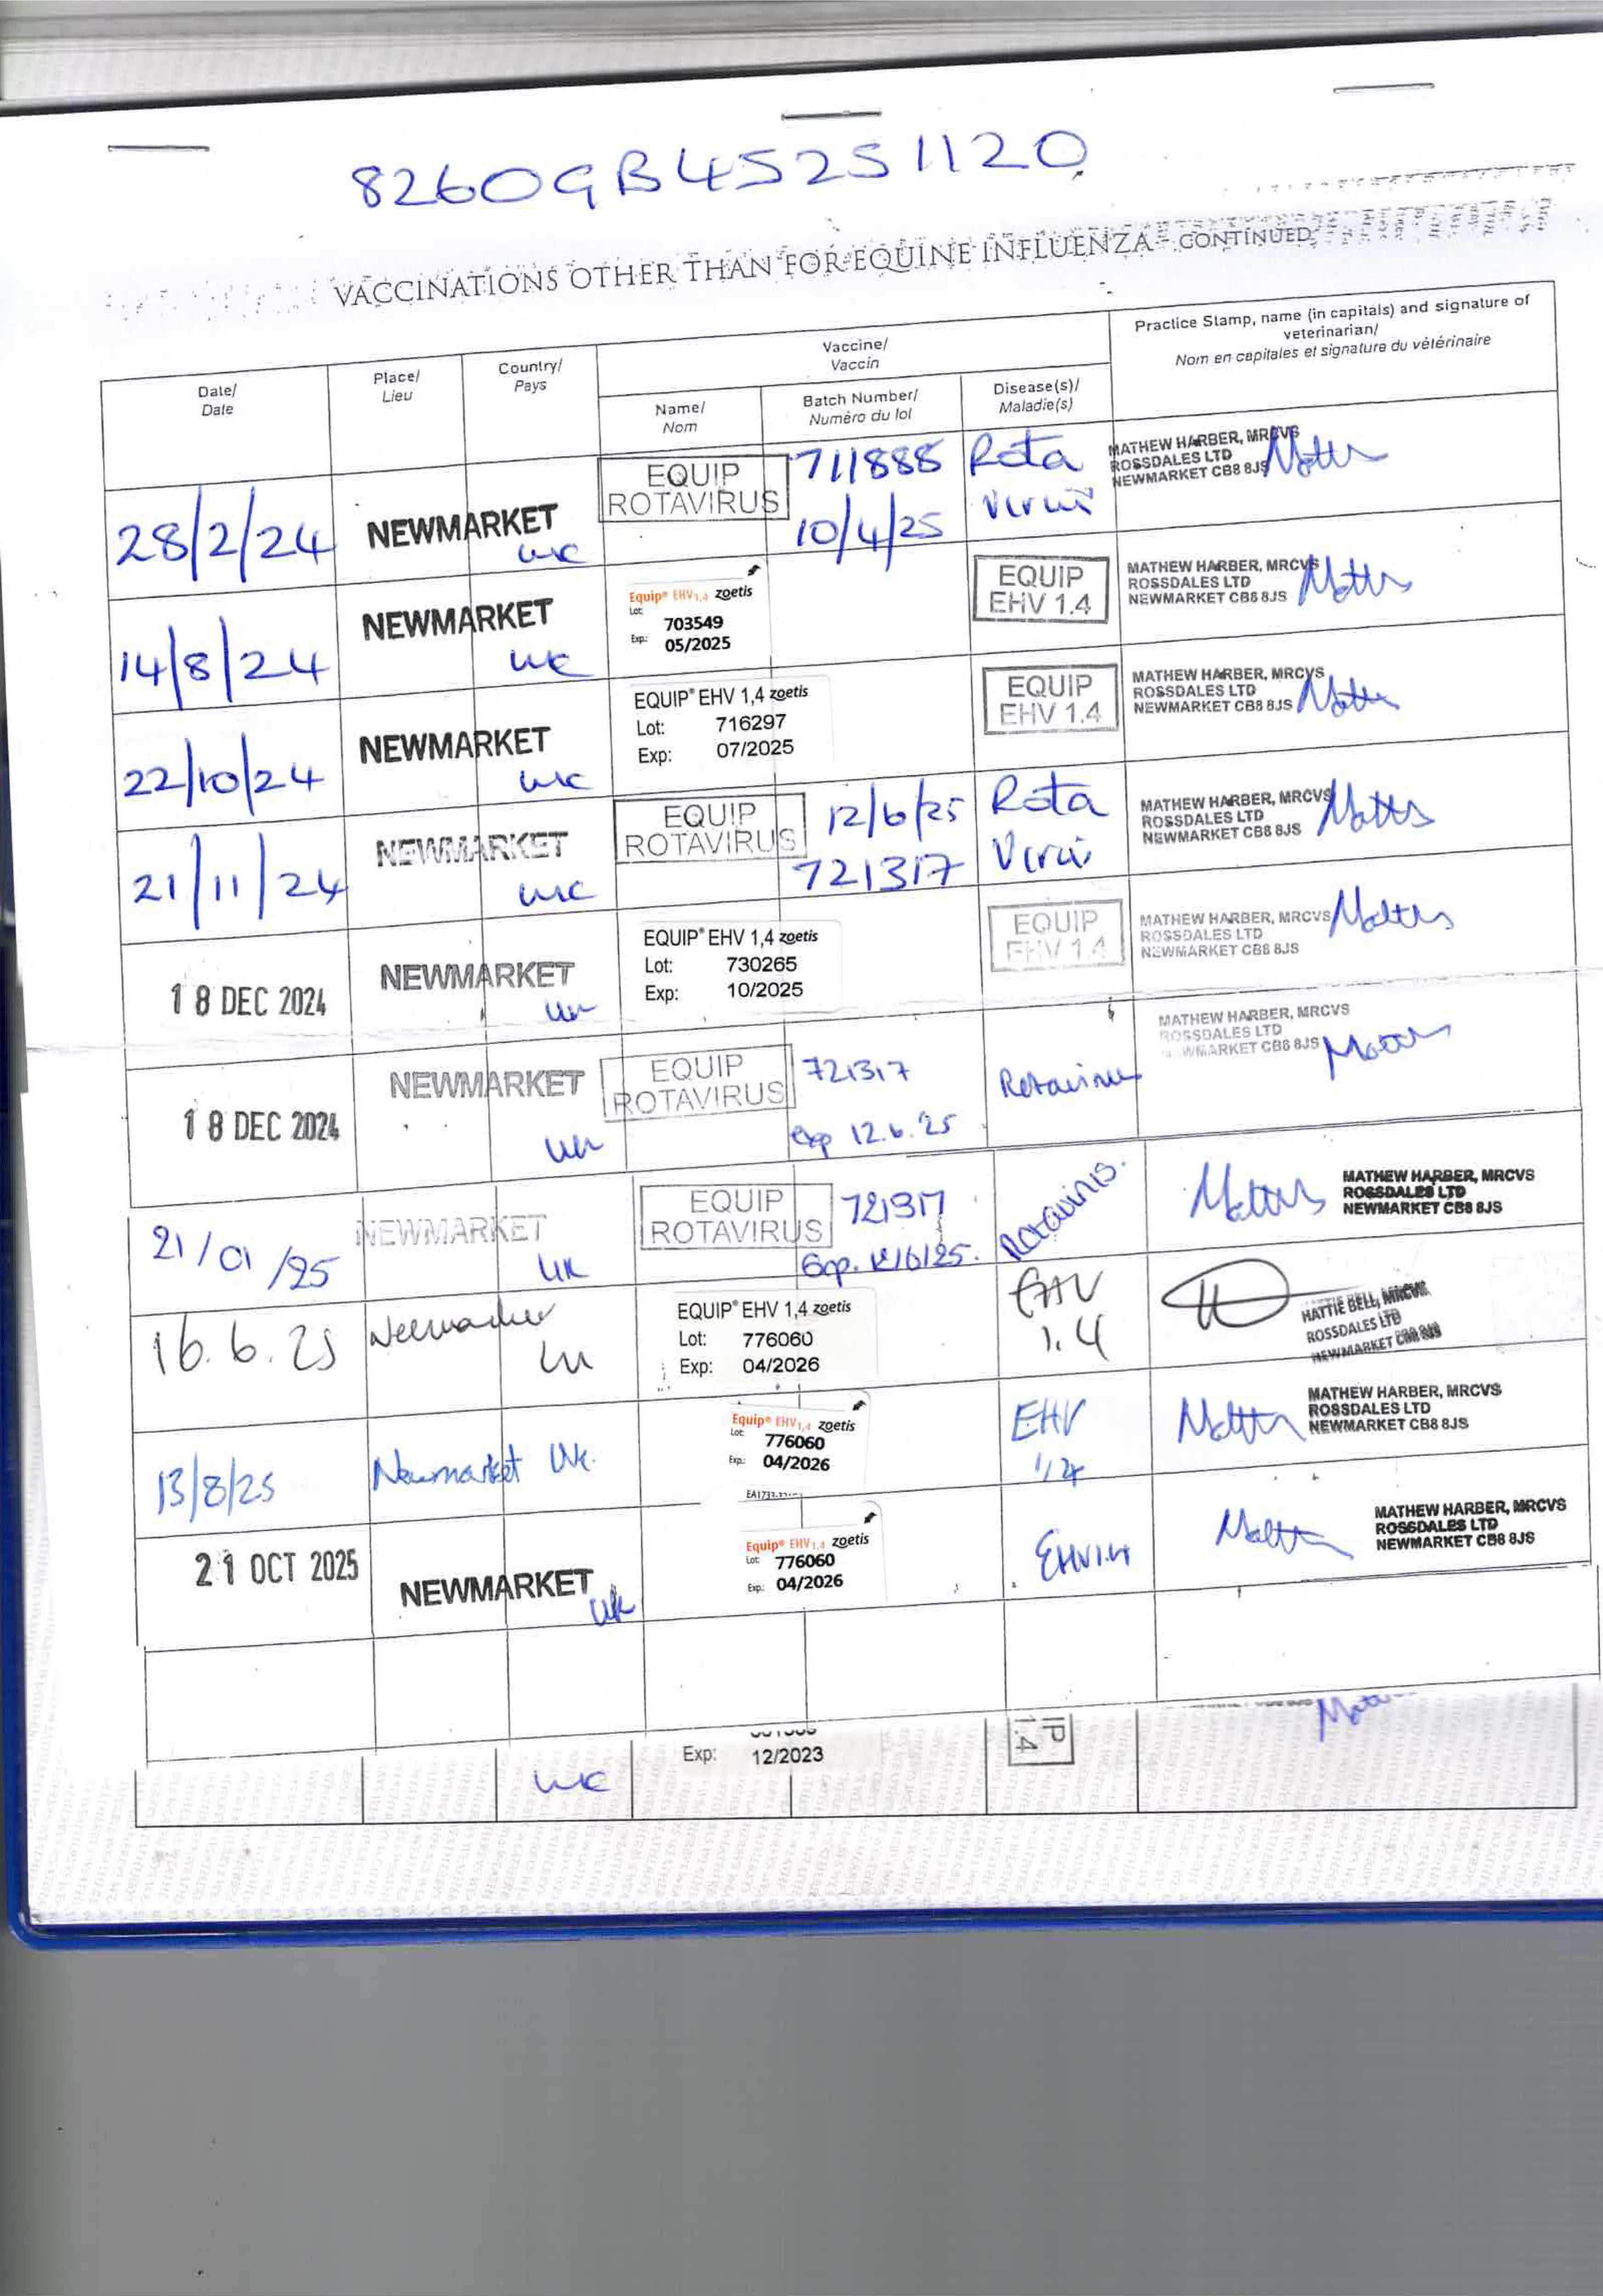 8260GB45251120
VACCINATIONS OTHER THAN FOR EQUINE INFLUENZA - CONTINUED
Date/ Date
Place/ Lieu
Country/ Pays
Vaccine/ Vaccin
Name/ Nom
Batch Number/ Numéro du lot
Disease(s)/ Maladie(s)
Practice Stamp, name (in capitals) and signature of
veterinarian/
Nom en capitales et signature du vétérinaire
28/2/24 NEWMARKET UK
EQUIP
ROTAVIRUS
711885
10/4/25
Rota
Virus
MATHEW HARBER, MRCVS
ROSSDALES LTD
NEWMARKET CB8 8JS
14/8/24 NEWMARKET UK
Equip® EHV1,4 zoetis
Lot: 703549
Exp: 05/2025
EQUIP
EHV 1.4
MATHEW HARBER, MRCVS
ROSSDALES LTD
NEWMARKET CB8 8JS
22/10/24 NEWMARKET UK
EQUIP® EHV 1,4 zoetis
Lot: 716297
Exp: 07/2025
EQUIP
EHV 1.4
MATHEW HARBER, MRCVS
ROSSDALES LTD
NEWMARKET CB8 8JS
21/11/24 NEWMARKET UK
EQUIP
ROTAVIRUS
12/6/25
721317
Rota
Virus
MATHEW HARBER, MRCVS
ROSSDALES LTD
NEWMARKET CB8 8JS
18 DEC 2024 NEWMARKET UK
EQUIP® EHV 1,4 zoetis
Lot: 730265
Exp: 10/2025
EQUIP
EHV 1.4
MATHEW HARBER, MRCVS
ROSSDALES LTD
NEWMARKET CB8 8JS
18 DEC 2024 NEWMARKET UK
EQUIP
ROTAVIRUS
721317
exp 12.6.25
Rotavirus
MATHEW HARBER, MRCVS
ROSSDALES LTD
NEWMARKET CB8 8JS
21/01/25 NEWMARKET UK
EQUIP
ROTAVIRUS
721317
Exp. 12/6/25.
Rotavirus.
MATHEW HARBER, MRCVS
ROSSDALES LTD
NEWMARKET CB8 8JS
16.6.25 Newmarket UK
EQUIP® EHV 1,4 zoetis
Lot: 776060
Exp: 04/2026
EHV
1.4
HATTIE BELL, MRCVS
ROSSDALES LTD
NEWMARKET CB8 8JS
13/8/25 Newmarket UK.
Equip® EHV1,4 zoetis
Lot: 776060
Exp: 04/2026
EHV
1/4
MATHEW HARBER, MRCVS
ROSSDALES LTD
NEWMARKET CB8 8JS
21 OCT 2025 NEWMARKET UK
Equip® EHV1,4 zoetis
Lot: 776060
Exp: 04/2026
EHV1.4
MATHEW HARBER, MRCVS
ROSSDALES LTD
NEWMARKET CB8 8JS
UK
Exp: 12/2023
IP
1.4